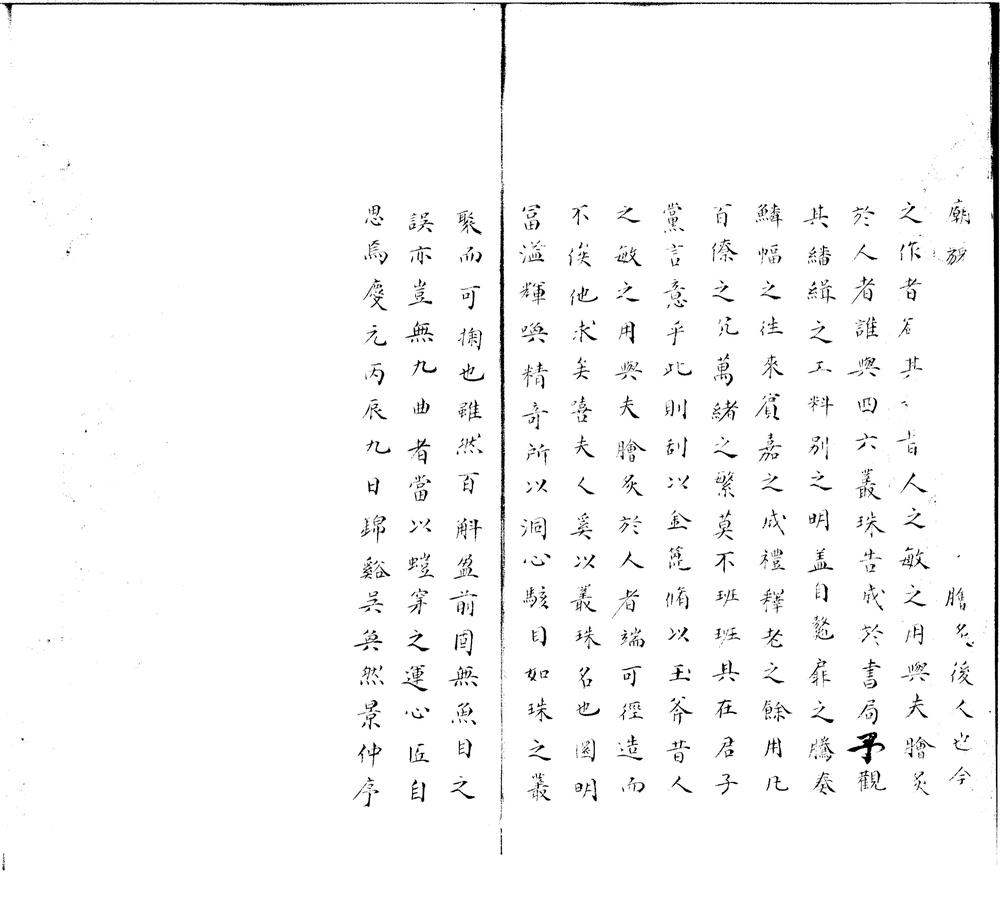 廟貌膾炙後人也今
之作者昔人之敏之用與夫膾炙
於人者誰與四六叢珠告成於書局予觀
其繙緝之工料別之明盖自鼇扉之騰奏
鱗幅之往來賓嘉之成禮釋老之餘用凡
百僚之冗萬緒之繁莫不班班具在君子
黨言意乎此則刮以金篦脩以玉斧昔人
之敏之用與夫膾炙於人者端可徑造而
不俟他求矣嘻夫人奚以叢珠名也圜明
冨溢輝㬇精竒所以洞心駭目如珠之叢
聚而可掬也雖然百斛盈前固無魚目之
誤亦豈無九曲者當以螘穿之運心匠自
思焉慶元丙辰九日錦谿吳奐然景仲序